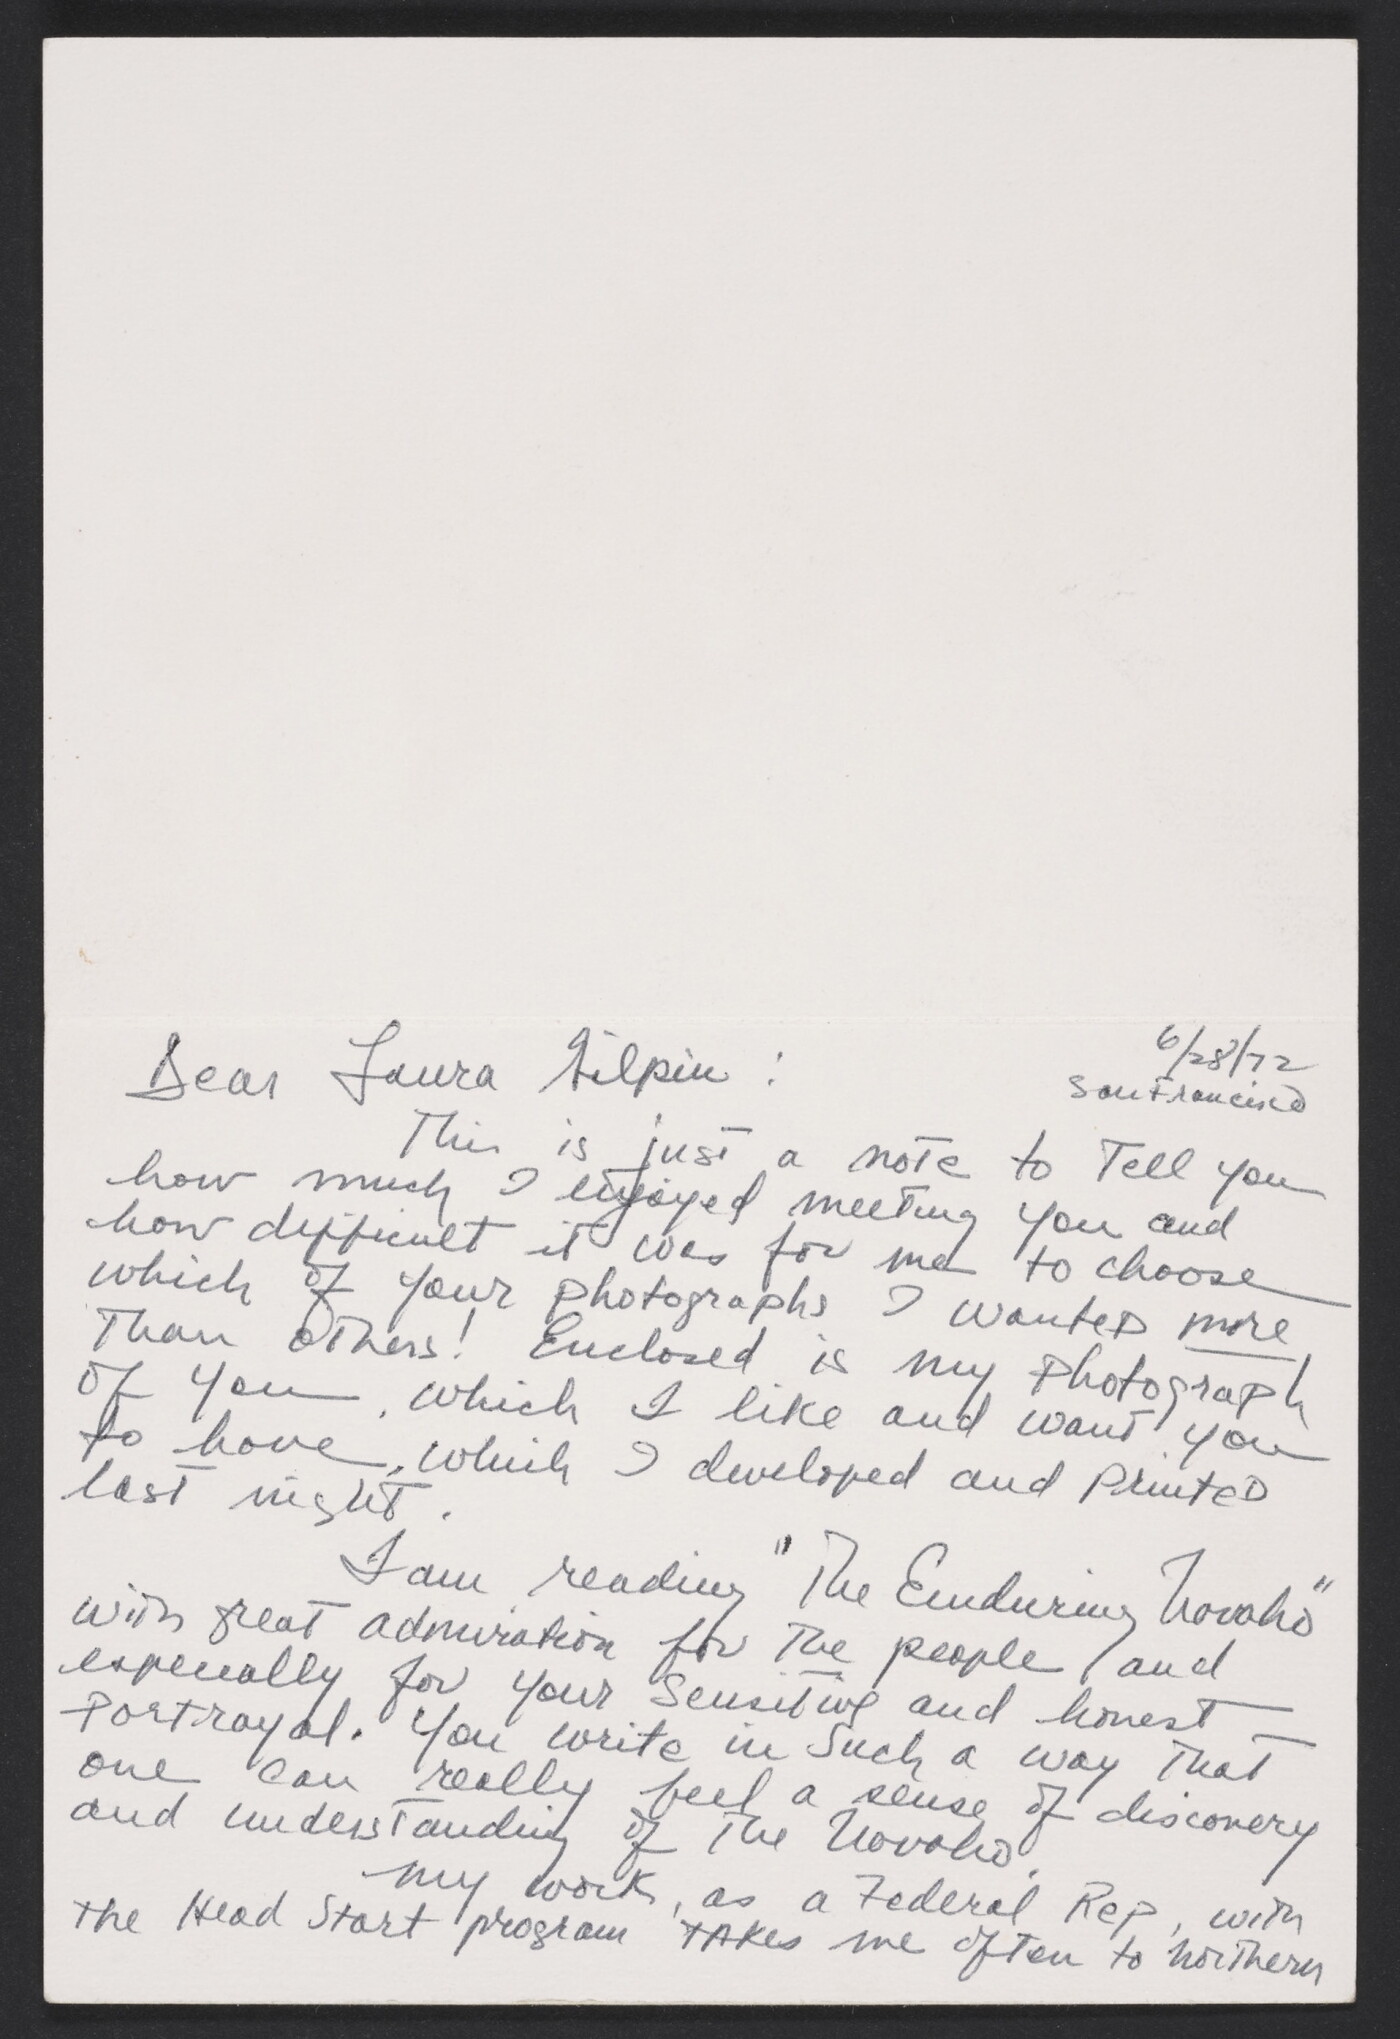 6/28/72
San Francisco
Dear Laura Gilpin:
This is just a note to Tell you
how much I enjoyed meeting you and
how difficult it was for me to choose
which of your photographs I wanted more
Than others! Enclosed is my photograph
of you, which I like and want you
to have, which I developed and printed
last night.
I am reading "The Enduring Navaho"
with great admiration for The people and
especially for your sensitive and honest
portrayal. You write in such a way That
one can really feel a sense of discovery
and understanding of The Navaho.
My work, as a Federal Rep, with
the Head Start program takes me often to northern